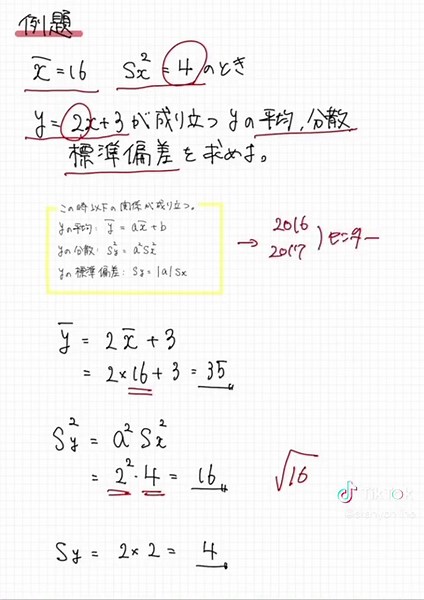 例題
x̄=16 Sx²=4のとき
y=2x+3が成り立つyの平均,分散
標準偏差を求めよ。
この時以下の関係が成り立つ。
yの平均: ȳ = ax̄+b
yの分散: Sy²=a²Sx²
yの標準偏差: Sy=|a|Sx
→ 2016
2017 ) センター
ȳ = 2x̄+3
= 2×16+3 = 35
Sy² = a²Sx²
= 2²·4 = 16
√16
TikTok
Sy = 2×2 = 4